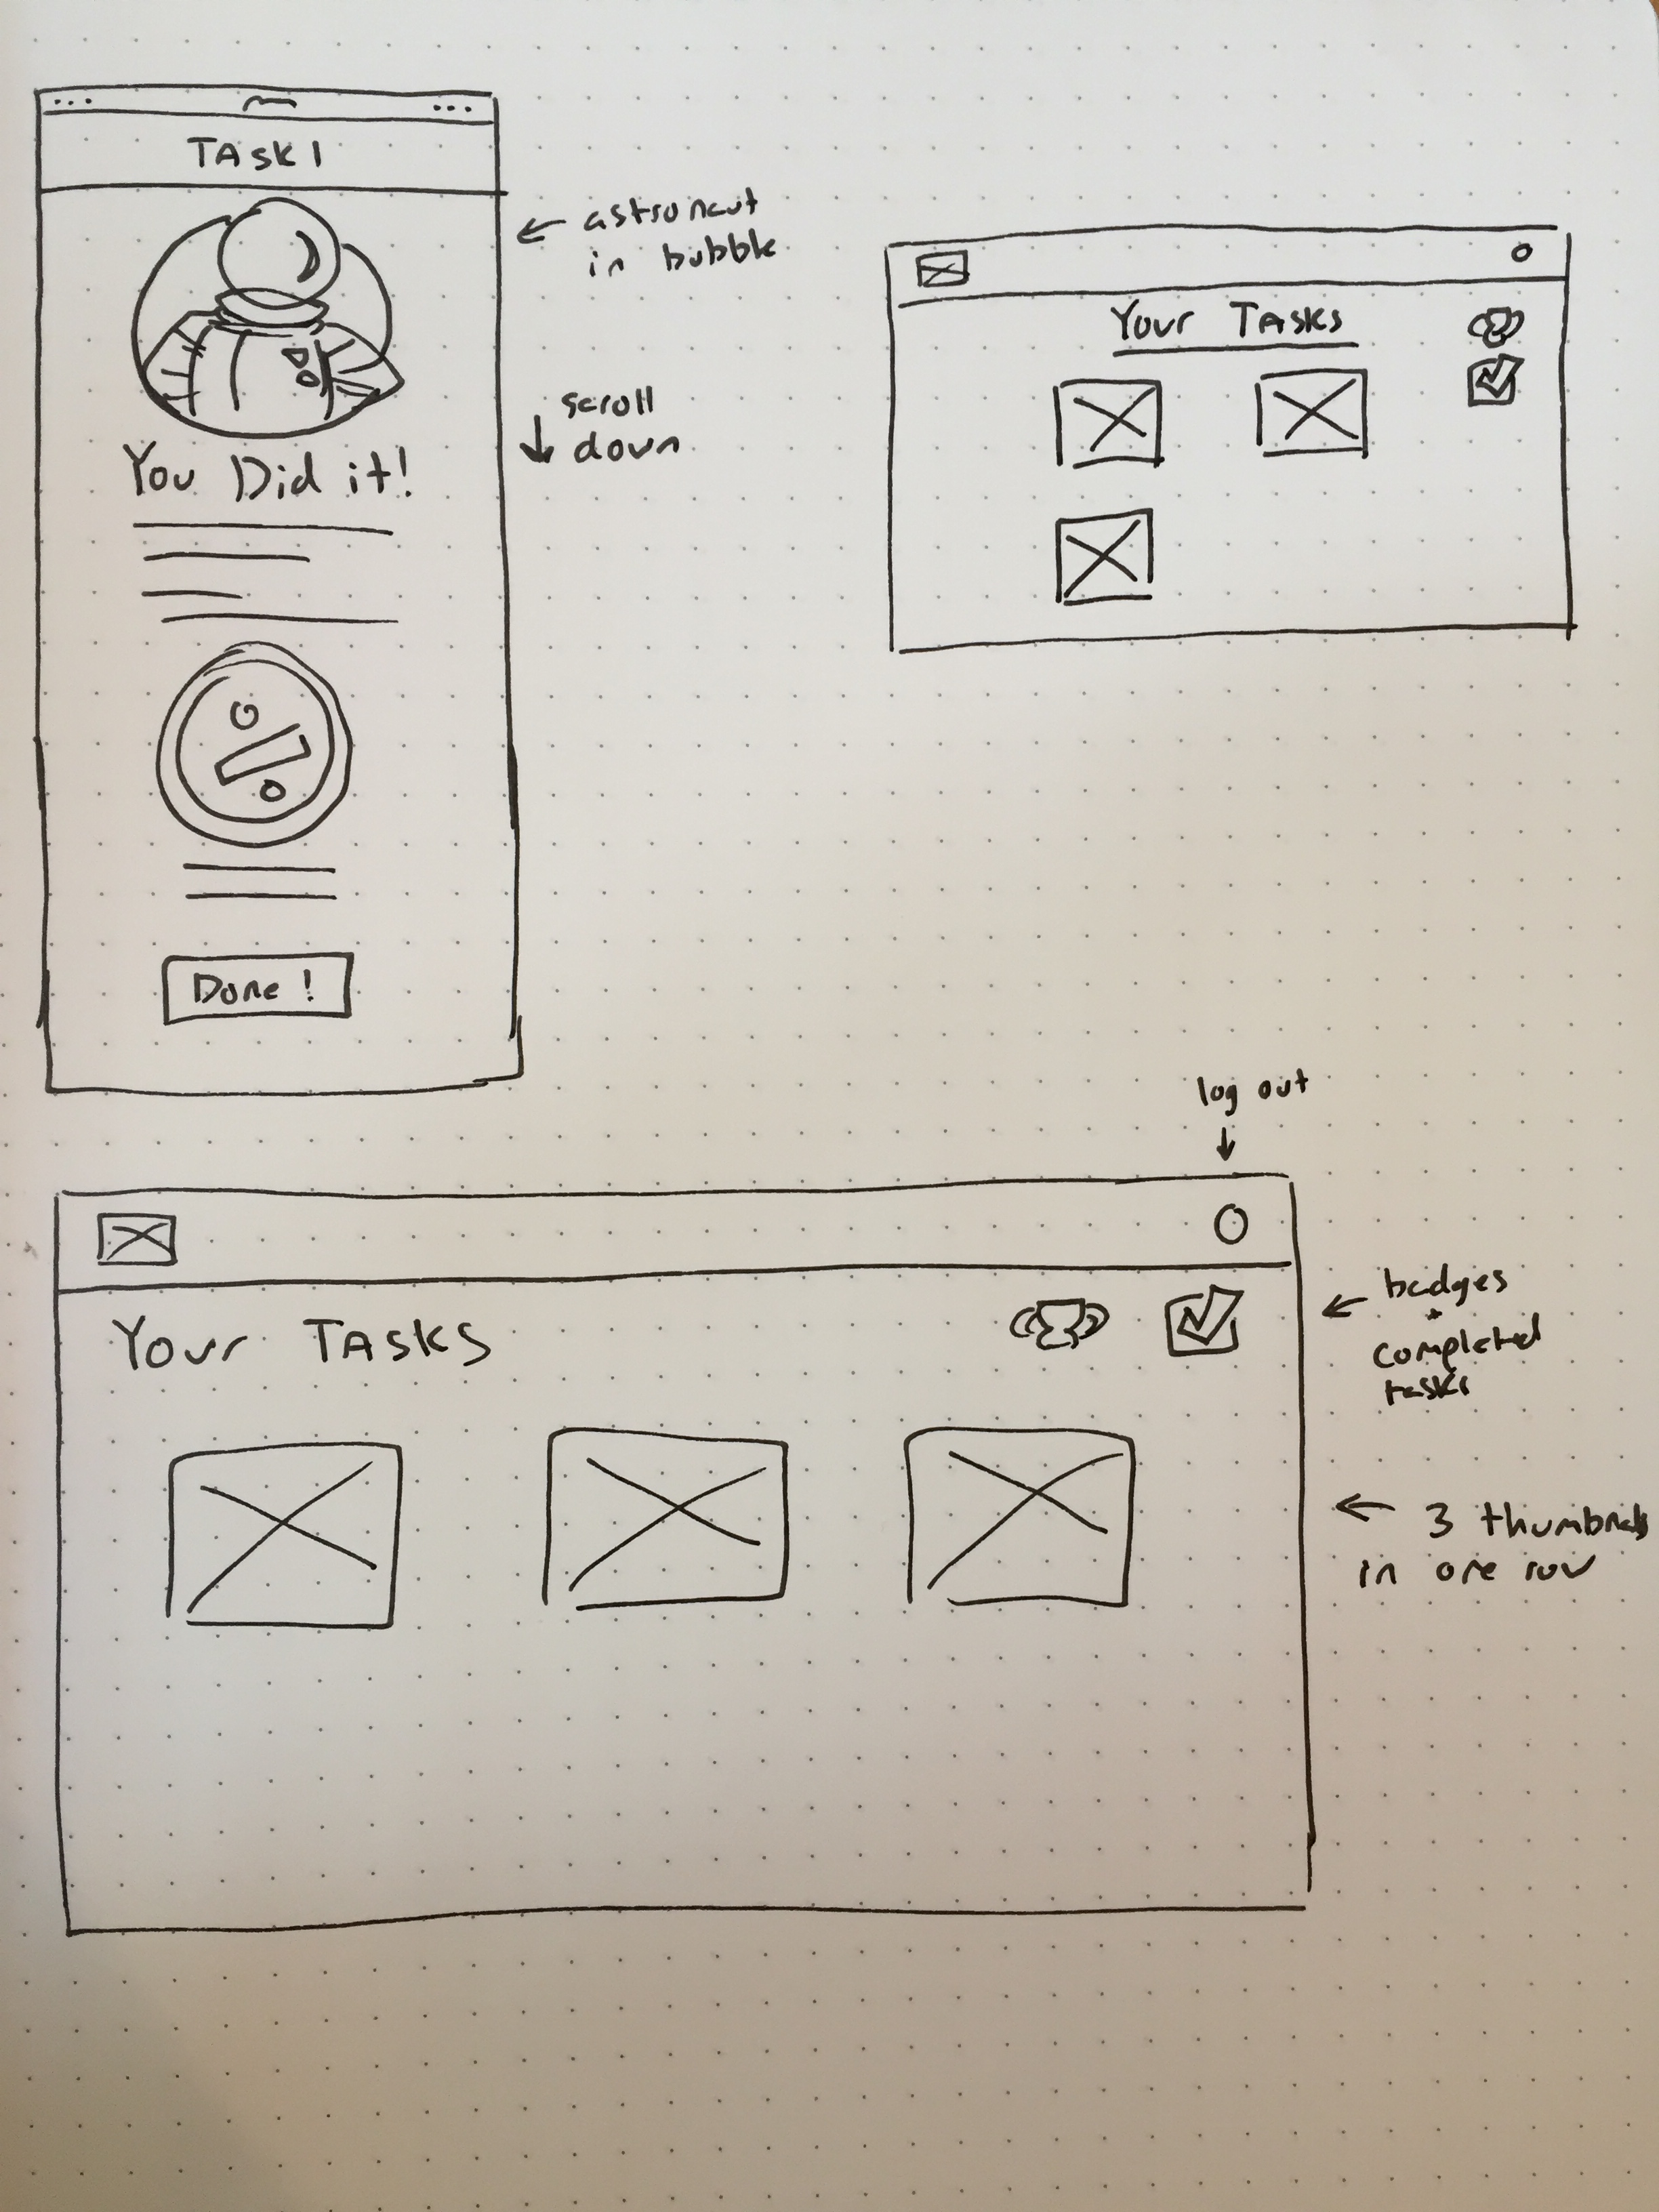 TASK 1
← astronaut
in bubble
You Did it!
↓ scroll
down
Done!
Your Tasks
log out
↓
Your TASKS
← badges
+
completed
tasks
← 3 thumbnails
in one row